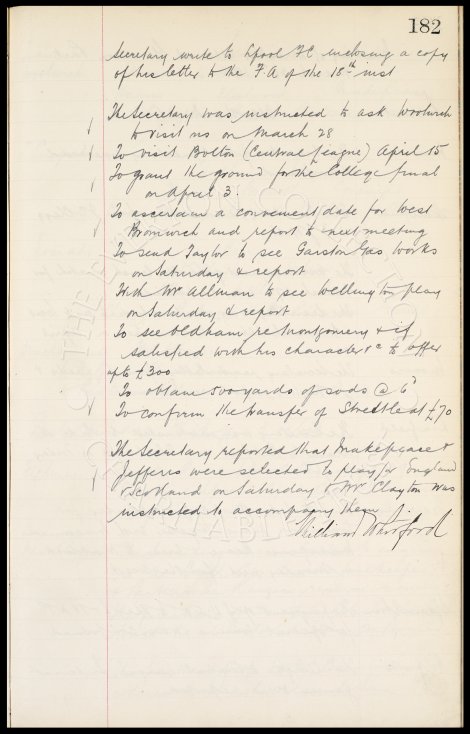 182
Secretary write to Lpool FC inclosing a copy
of his letter to the F A of the 18th inst
The Secretary was instructed to ask Woolwich
to visit us on March 28
To visit Bolton (Central League) April 15
To grant the ground for the College final
on April 3.
To ascertain a convenient date for West
Bromwich and report to next meeting
To send Taylor to see Garston Gas Works
on Saturday & report
Mr Allman to see Wellington play
on Saturday & report
To see Oldham re Montgomery & if
satisfied with his character &c to offer
up to £300
To obtain 500 yards of sods @ 6d
To confirm the transfer of at £70
The Secretary reported that Makepeace &
Jefferis were selected to play for England
v Scotland on Saturday & Mr Clayton was
instructed to accompany them
William